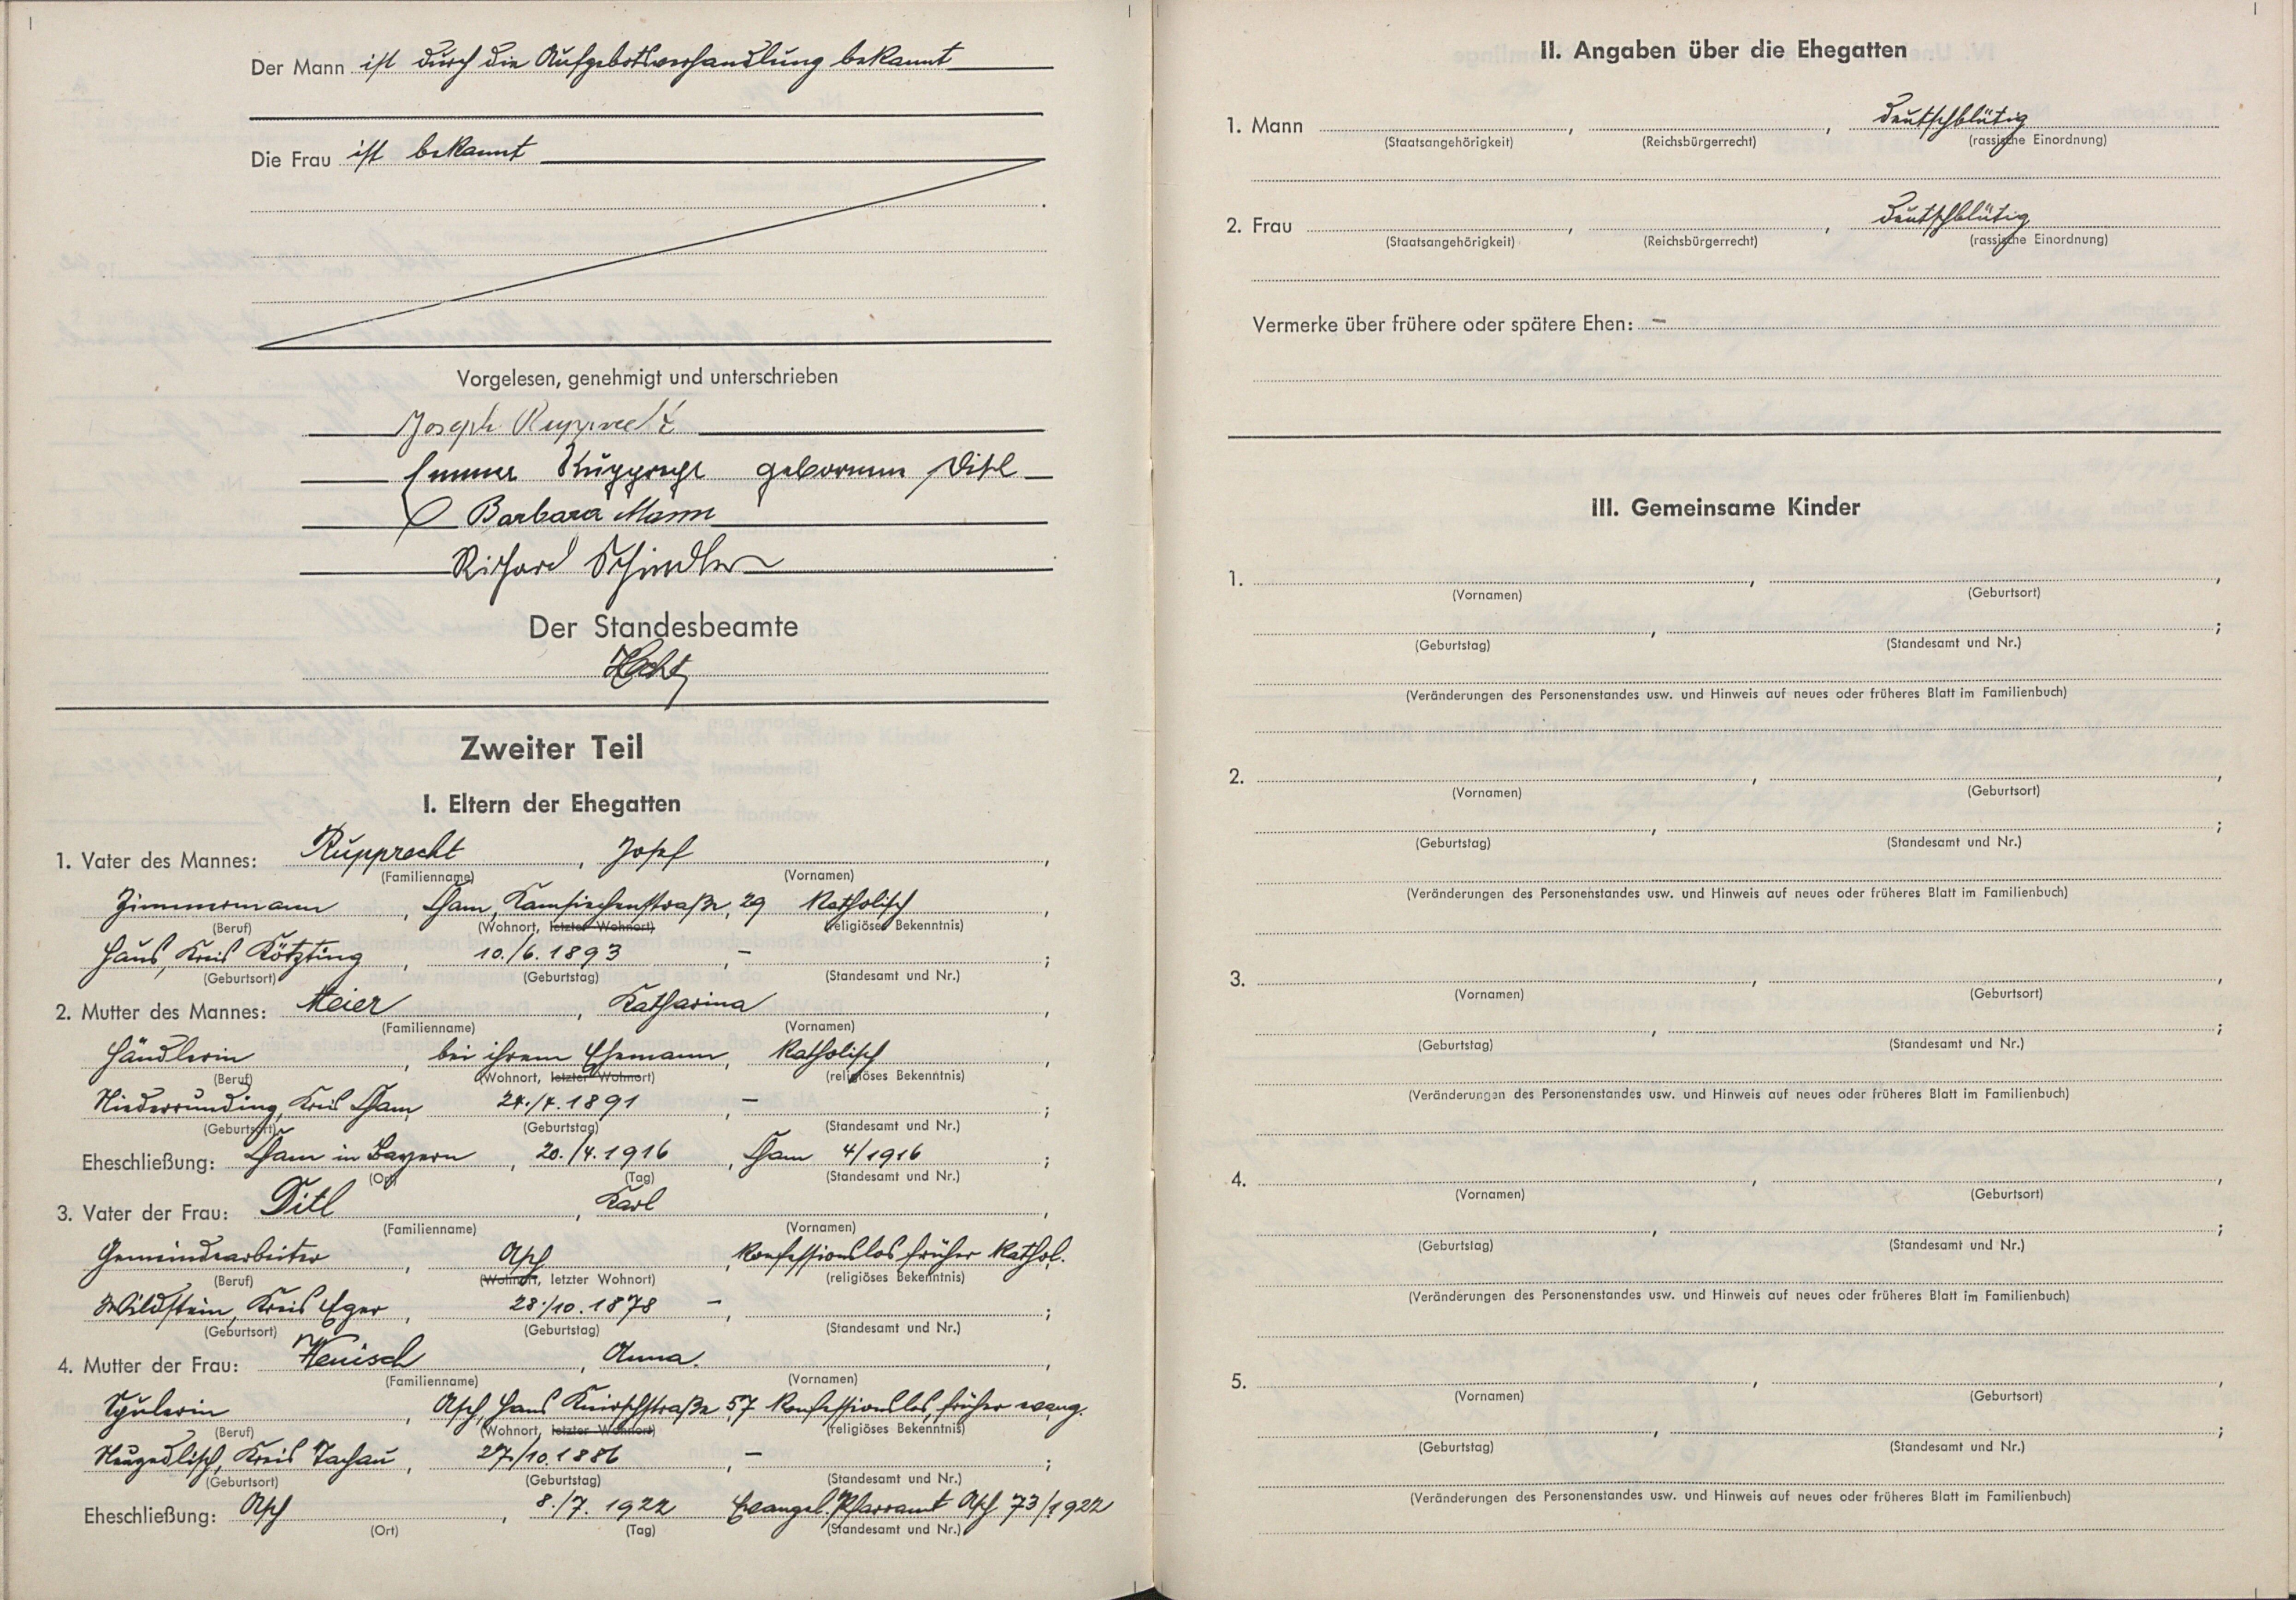 Der Mann ist durch die Aufgebotsverhandlung bekannt
Die Frau ist bekannt
Vorgelesen, genehmigt und unterschrieben
Joseph Rupprecht
Emma Rupprecht geborene Ditl
Barbara Mann
Richard Schindler
Der Standesbeamte
Zweiter Teil
I. Eltern der Ehegatten
1. Vater des Mannes: Rupprecht, Josef,
(Familienname) (Vornamen)
Zimmermann, Cham, 29 katholisch,
(Beruf) (Wohnort, letzter Wohnort) (religiöses Bekenntnis)
Haus, Kreis Kötzting, 10./6.1893, – ;
(Geburtsort) (Geburtstag) (Standesamt und Nr.)
2. Mutter des Mannes: Meier, Katharina,
(Familienname) (Vornamen)
Händlerin, bei ihrem Ehemann, katholisch,
(Beruf) (Wohnort, letzter Wohnort) (religiöses Bekenntnis)
Niederrunding, Kreis Cham, 24./4.1891, – ;
(Geburtsort) (Geburtstag) (Standesamt und Nr.)
Eheschließung: Cham in Bayern, 20./4.1916, Cham 4/1916;
(Ort) (Tag) (Standesamt und Nr.)
3. Vater der Frau: Ditl, Karl,
(Familienname) (Vornamen)
Gemeindearbeiter, Asch, konfessionslos früher kathol.
(Beruf) (Wohnort, letzter Wohnort) (religiöses Bekenntnis)
Wildstein, Kreis Eger, 28./10.1878 –, ;
(Geburtsort) (Geburtstag) (Standesamt und Nr.)
4. Mutter der Frau: Henisch, Anna.,
(Familienname) (Vornamen)
Spulerin, Asch, Hans Knirschstraße 57 konfessionslos, früher evang.
(Beruf) (Wohnort, letzter Wohnort) (religiöses Bekenntnis)
Neuzedlisch, Kreis Tachau, 27./10.1886, – ;
(Geburtsort) (Geburtstag) (Standesamt und Nr.)
Eheschließung: Asch, 8./7. 1922 Evangel. Pfarramt Asch 73/1922
(Ort) (Tag) (Standesamt und Nr.)
II. Angaben über die Ehegatten
1. Mann , , deutschblütig
(Staatsangehörigkeit) (Reichsbürgerrecht) (rassische Einordnung)
2. Frau , , deutschblütig
(Staatsangehörigkeit) (Reichsbürgerrecht) (rassische Einordnung)
Vermerke über frühere oder spätere Ehen: –
III. Gemeinsame Kinder
1. , ,
(Vornamen) (Geburtsort)
, ;
(Geburtstag) (Standesamt und Nr.)
(Veränderungen des Personenstandes usw. und Hinweis auf neues oder früheres Blatt im Familienbuch)
2. , ,
(Vornamen) (Geburtsort)
, ;
(Geburtstag) (Standesamt und Nr.)
(Veränderungen des Personenstandes usw. und Hinweis auf neues oder früheres Blatt im Familienbuch)
3. , ,
(Vornamen) (Geburtsort)
, ;
(Geburtstag) (Standesamt und Nr.)
(Veränderungen des Personenstandes usw. und Hinweis auf neues oder früheres Blatt im Familienbuch)
4. , ,
(Vornamen) (Geburtsort)
, ;
(Geburtstag) (Standesamt und Nr.)
(Veränderungen des Personenstandes usw. und Hinweis auf neues oder früheres Blatt im Familienbuch)
5. , ,
(Vornamen) (Geburtsort)
, ;
(Geburtstag) (Standesamt und Nr.)
(Veränderungen des Personenstandes usw. und Hinweis auf neues oder früheres Blatt im Familienbuch)